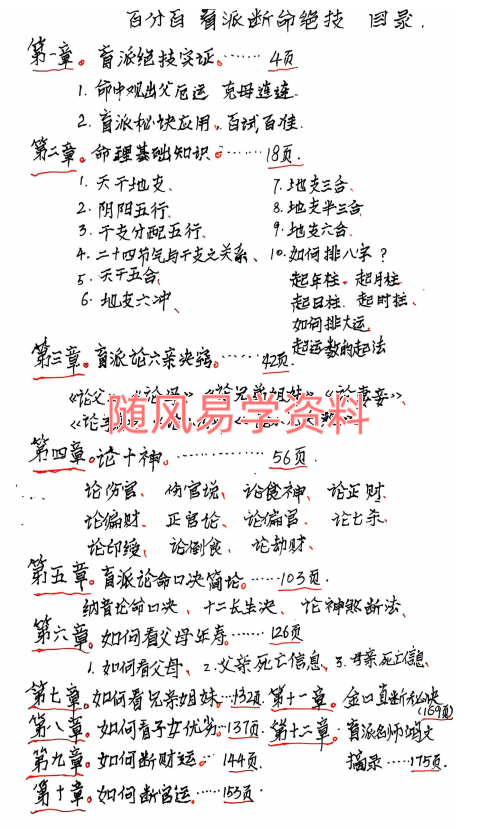 百分百盲派断命绝技 目录.
第一章。盲派绝技实证.……4页
1. 命中观出父厄运 克母连连
2. 盲派秘诀应用、百试百准.
第二章。命理基础知识。……18页.
1. 天干地支、
2. 阴阳五行、
3. 干支分配五行、
4. 二十四节气与干支之关系、
5. 天干五合、
6. 地支六冲、
7. 地支三合、
8. 地支半三合
9. 地支六合.
10. 如何排八字?
起年柱. 起月柱
起日柱、起时柱、
如何排大运、
起运数的起法
第三章。盲派论六亲诀窍.……42页.
《论父》、《论母》《论兄弟姐妹》《论妻妾》、
随风易学资料
第四章。论十神。…………56页
论伤官、伤官说、论食神、论正财.
论偏财. 正官论、论偏官. 论七杀.
论印绶、论倒食、论劫财、
第五章。盲派论命口决简论.……103页.
纳音论命口决、十二长生决、论神煞断法、
第六章。如何看父母年寿.……126页
1. 如何看父母、2. 父亲死亡信息、3. 母亲死亡信息.
第七章。如何看兄弟姐妹.…132页.
第八章。如何看子女优劣.…137页.
第九章。如何断财运。… 144页.
第十章。如何断官运.……153页.
第十一章。金口直断秘诀
(169页)
第十二章. 盲派名师鸿文
摘录……175页.